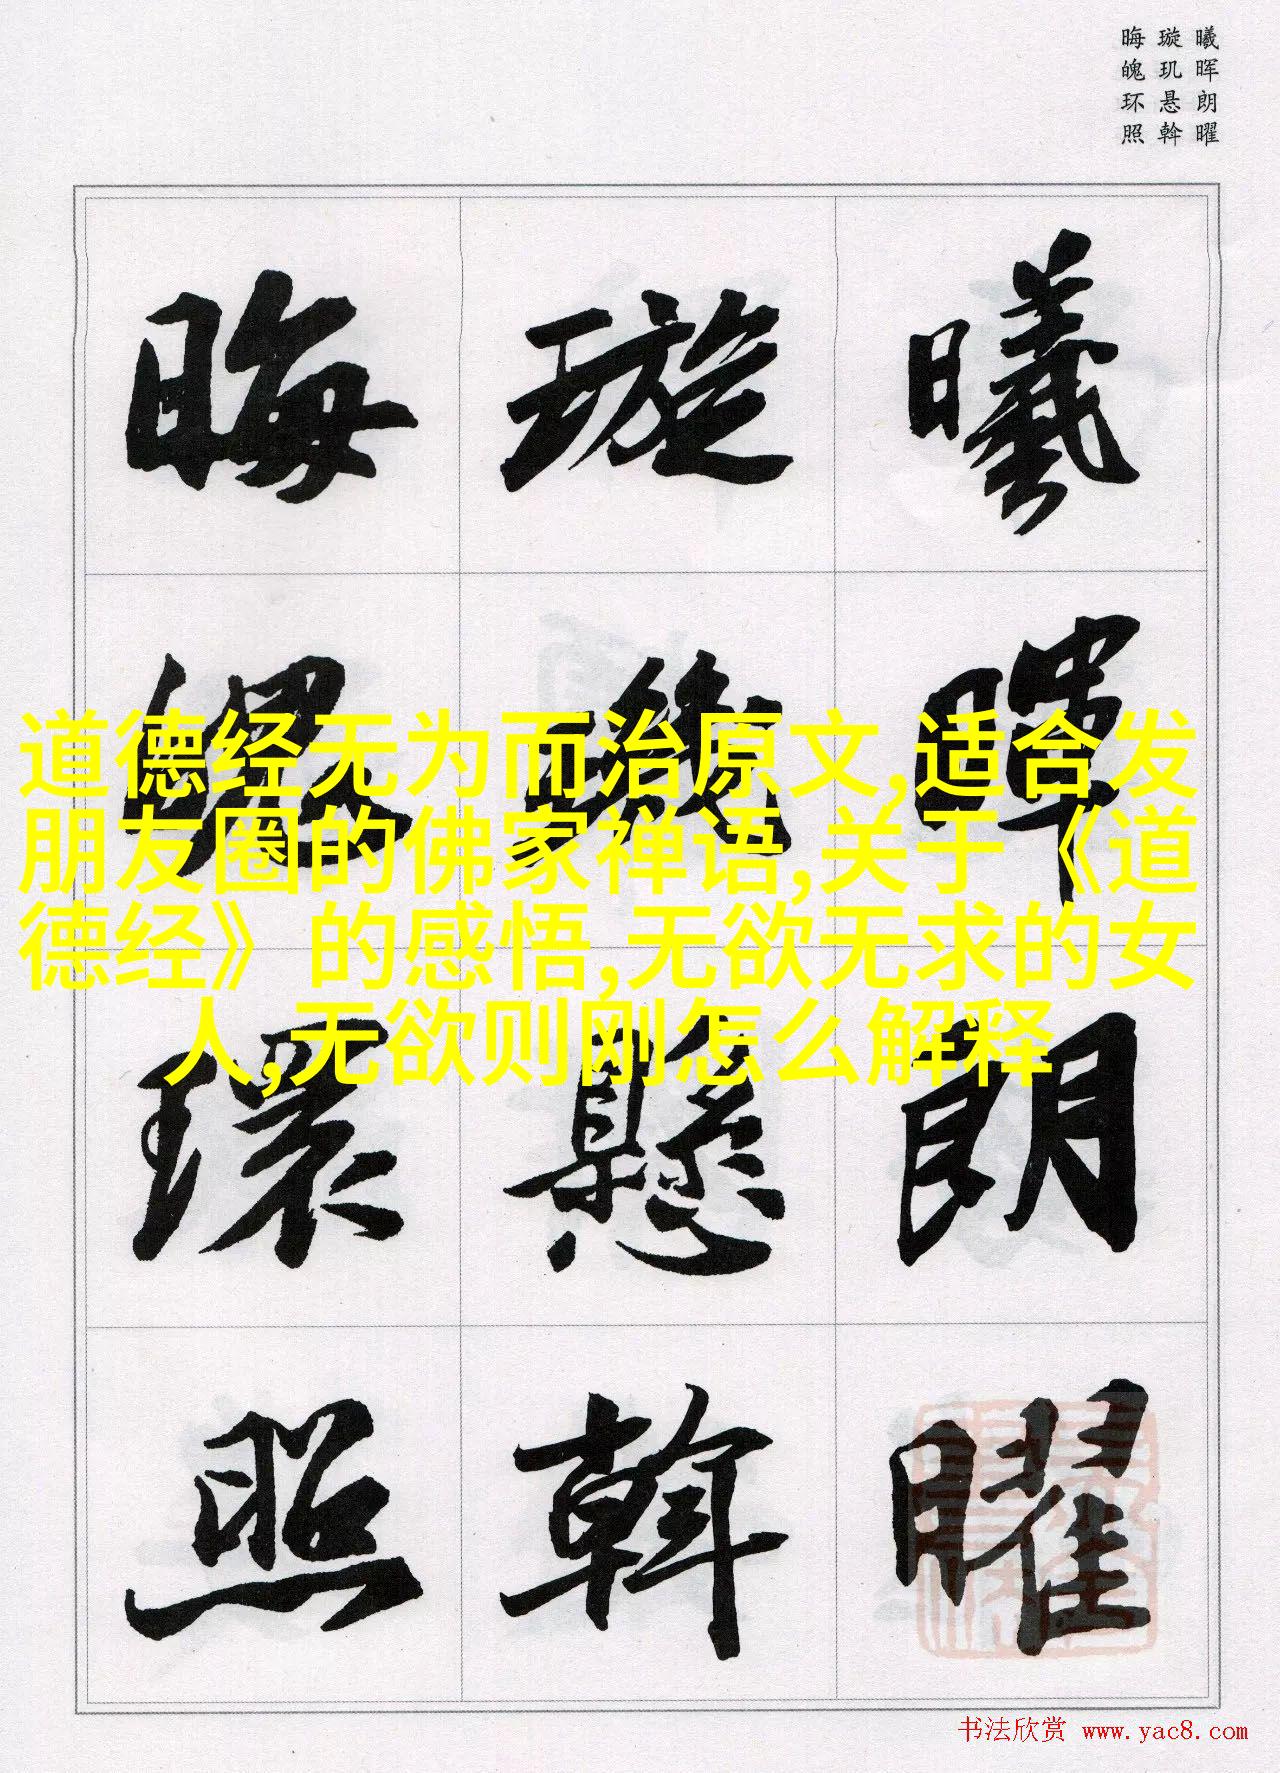 曦晖朗曜
璇玑悬斡
晦魄环照
曦暉朗曜
璇璣懸斡
晦魄環照
道德经无为而治原文,适合发
朋友圈的佛家禅语,关于《道
德经》的感悟,无欲无求的女
人,无欲则刚怎么解释
书法欣赏 www.yac8.com